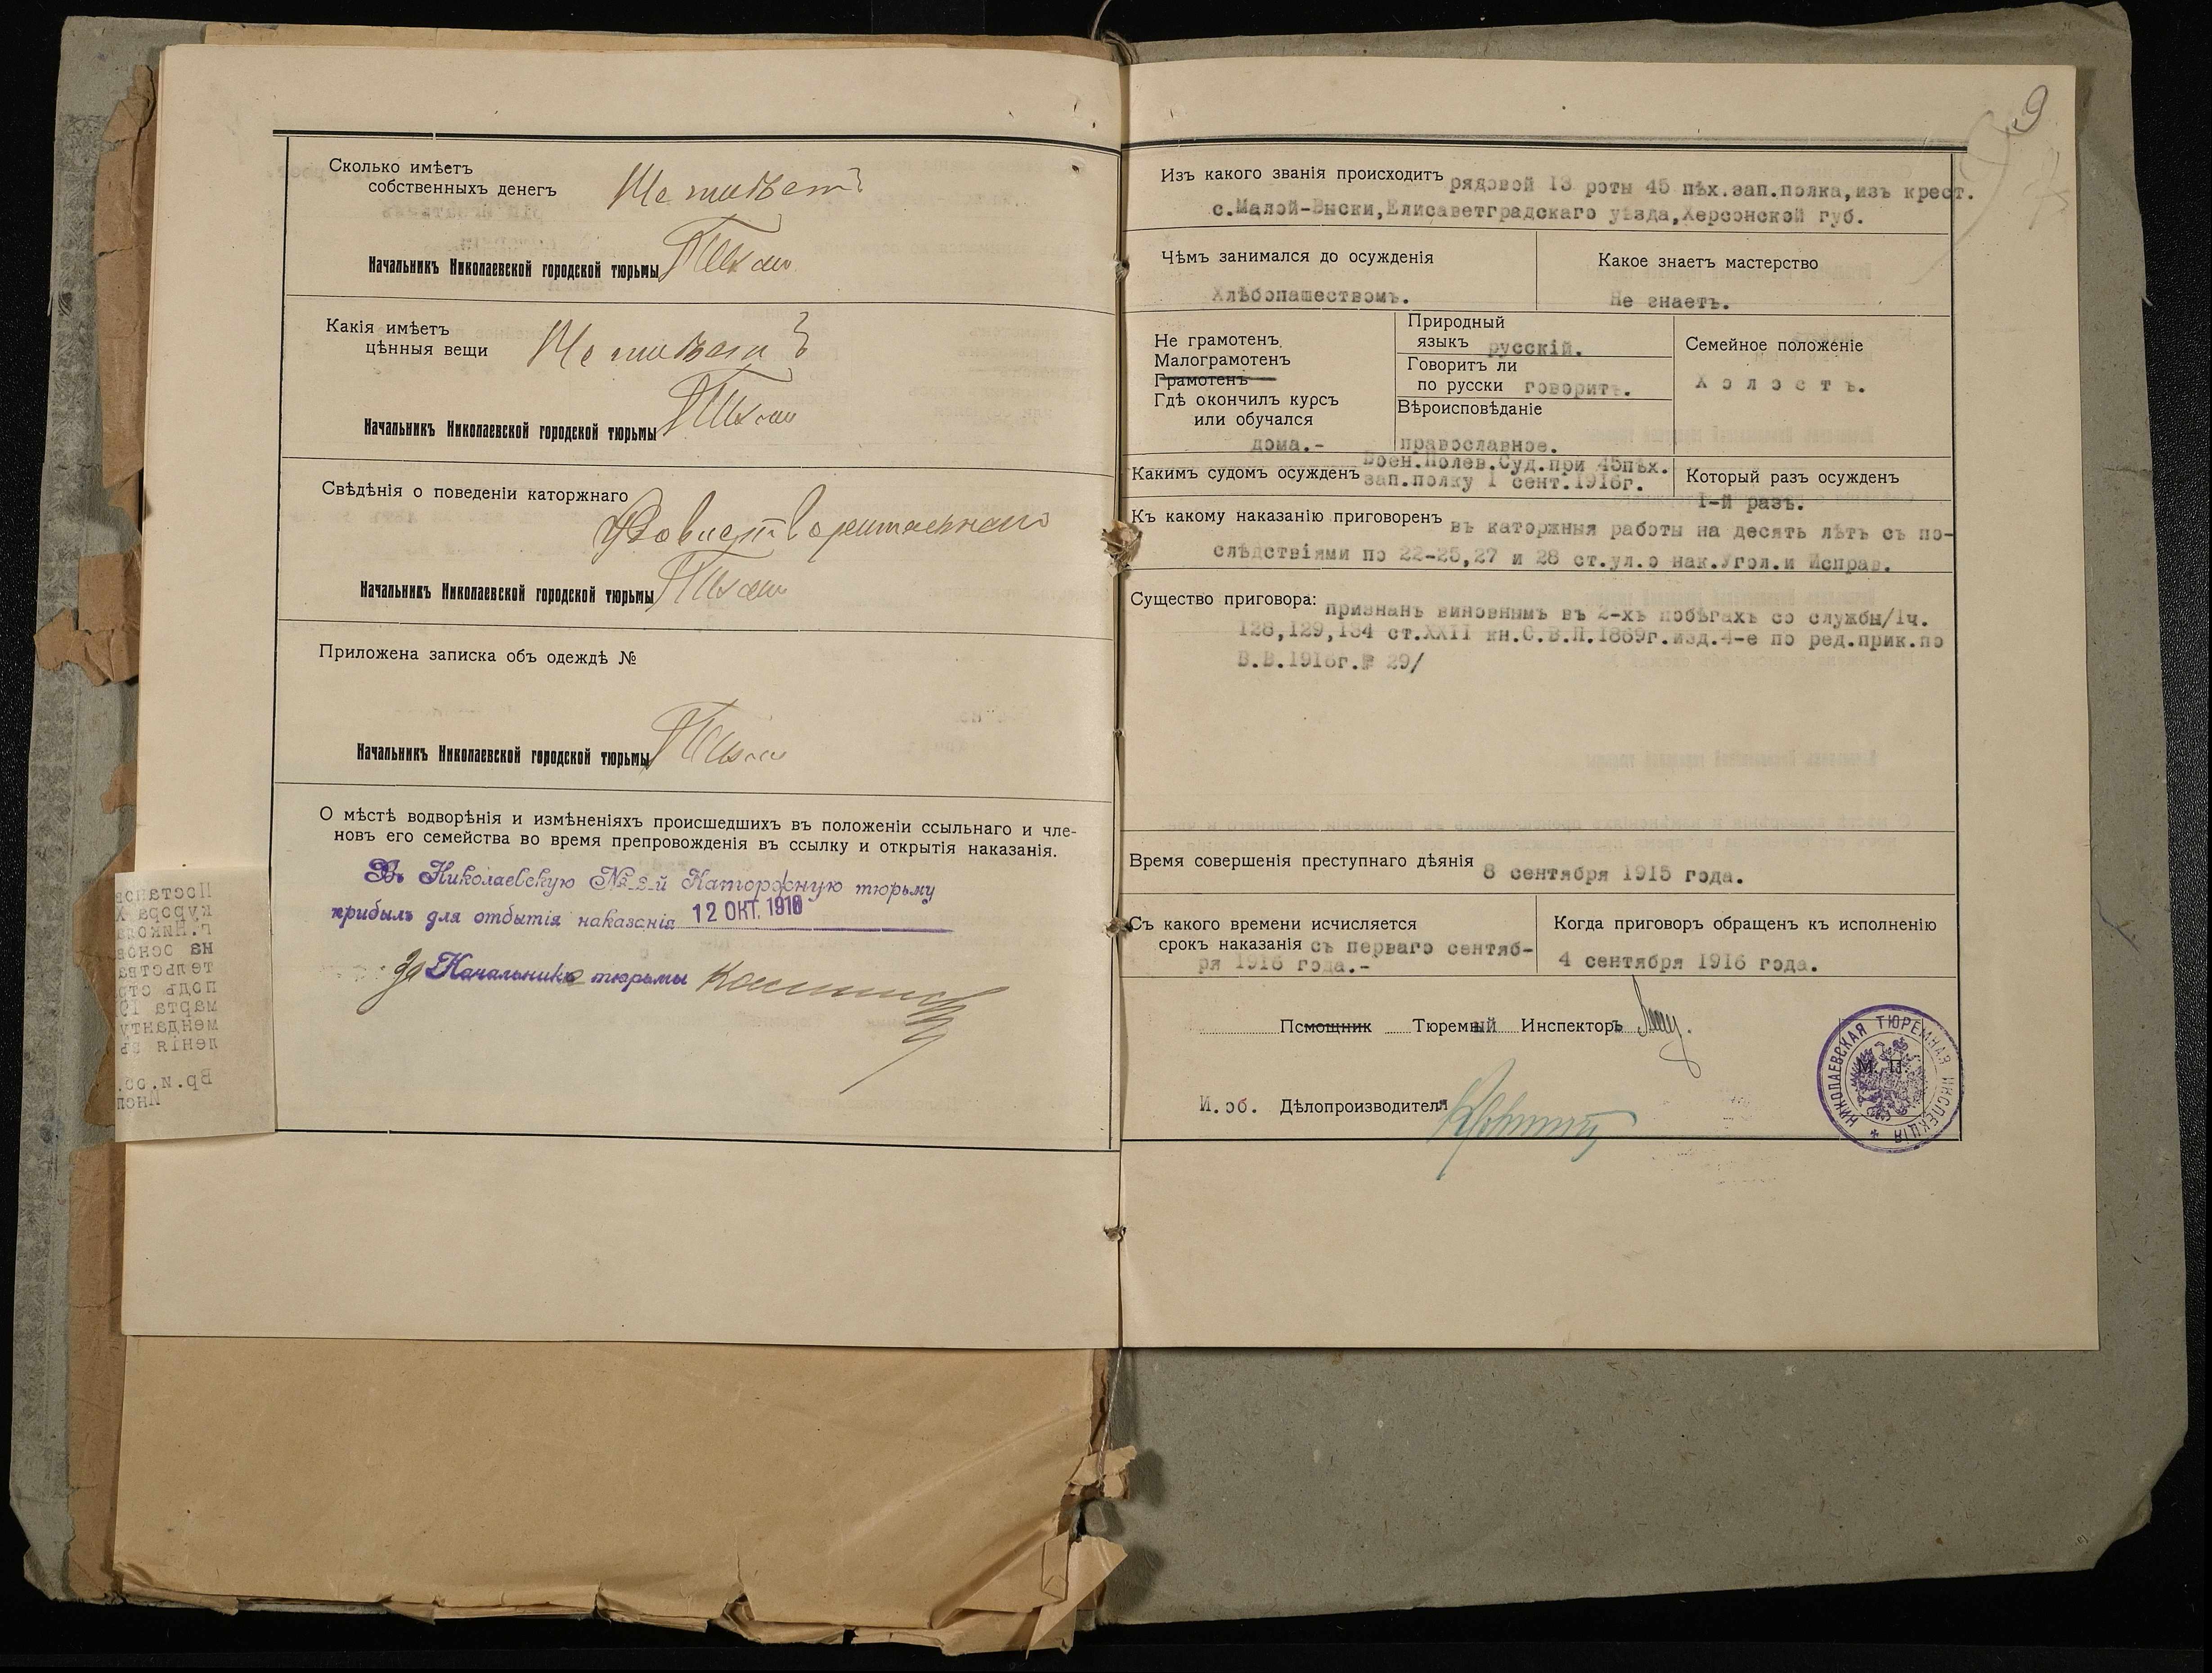 Сколько имѣетъ
собственныхъ денегъ
Не имѣетъ
Начальникъ Николаевской городской тюрьмы
Какія имѣетъ
цѣнныя вещи
Не имѣетъ
Начальникъ Николаевской городской тюрьмы
Свѣдѣнія о поведеніи каторжнаго
Удовлетворительнаго
Начальникъ Николаевской городской тюрьмы
Приложена записка объ одеждѣ №
Начальникъ Николаевской городской тюрьмы
О мѣстѣ водворѣнія и измѣненіяхъ происшедшихъ въ положеніи ссыльнаго и чле-
новъ его семейства во время препровожденія въ ссылку и открытія наказанія.
Въ Николаевскую № 2-й Каторжную тюрьму
прибылъ для отбытія наказанія 12 ОКТ. 1916
Начальника тюрьмы
9
Изъ какого званія происходитъ рядовой 13 роты 45 пѣх.зап.полка,изъ крест.
с.Малой-Выски,Елисаветградскаго уѣзда,Херсонской губ.
Чѣмъ занимался до осужденія
Хлѣбопашествомъ.
Какое знаетъ мастерство
Не знаетъ.
Не грамотенъ
Малограмотенъ
Грамотенъ
Гдѣ окончилъ курсъ
или обучался
дома.-
Природный
языкъ русскій.
Говоритъ ли
по русски говоритъ.
Вѣроисповѣданіе
православное.
Семейное положеніе
Холостъ.
Какимъ судомъ осужденъ Воен.Полев.Суд.при 45пѣх.
зап.полку 1 сент.1916г.
Который разъ осужденъ
1-й разъ.
Къ какому наказанію приговоренъ въ каторжныя работы на десять лѣтъ съ по-
слѣдствіями по 22-25,27 и 28 ст.ул.о нак.Угол.и Исправ.
Существо приговора: признанъ виновнымъ въ 2-хъ побѣгахъ со службы/1ч.
128,129,134 ст.XXII кн.С.В.П.1869г.изд.4-е по ред.прик.по
В.В.1916г.№ 29/
Время совершенія преступнаго дѣянія 8 сентября 1915 года.
Съ какого времени исчисляется
срокъ наказанія съ перваго сентяб-
ря 1916 года.-
Когда приговоръ обращенъ къ исполненію
4 сентября 1916 года.
Помощник Тюремный Инспекторъ
И.об. Дѣлопроизводителя
М. П.
НИКОЛАЕВСКАЯ ТЮРЕМНАЯ ИНСПЕКЦІЯ